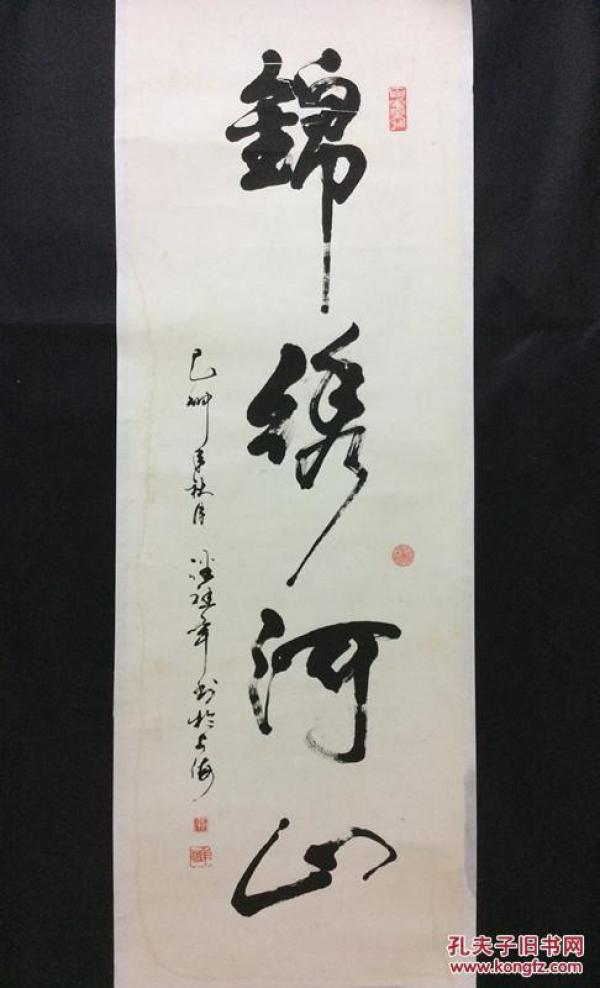 錦繡河山
己卯年秋月 書於上海
孔夫子旧书网
www.kongfz.com